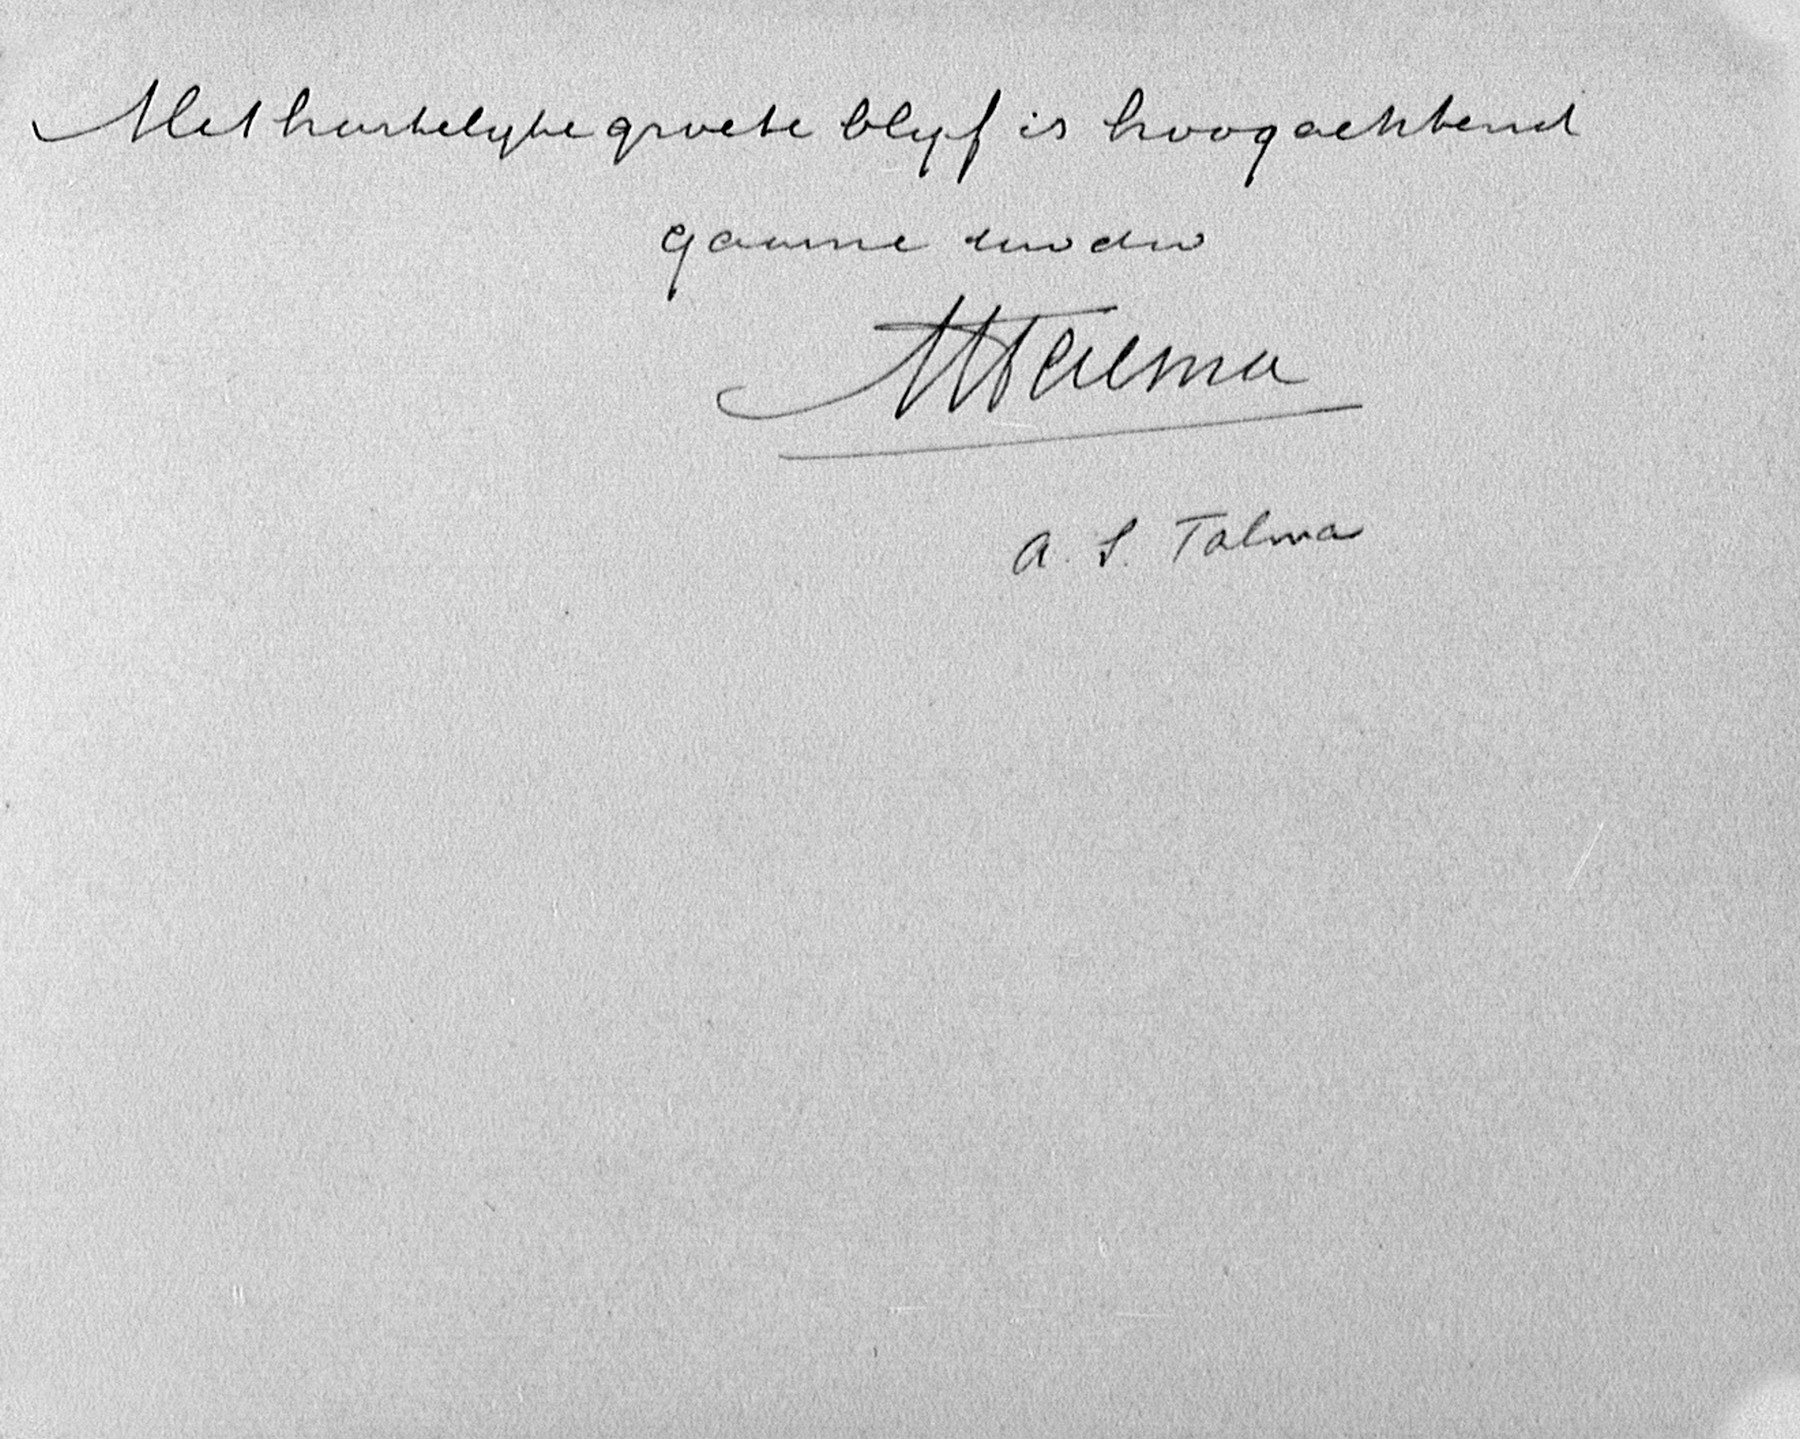 Met hartelyke groete blyf is hoogachtend
gaarne uw dw
ASTalma
A. S. Talma